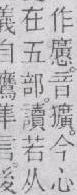 作應。音獷。今心
在五部。讀若从
義自鷹隼言。後